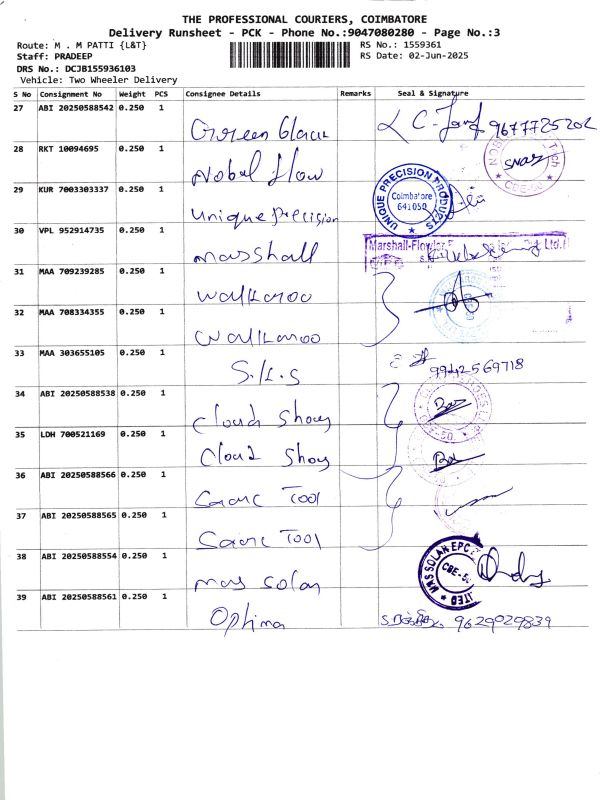 THE PROFESSIONAL COURIERS, COIMBATORE
Delivery Runsheet - PCK - Phone No.:9047080280 - Page No.:3
Route: M . M PATTI {L&T} RS No.: 1559361
Staff: PRADEEP RS Date: 02-Jun-2025
DRS No.: DCJB155936103
Vehicle: Two Wheeler Delivery
S No Consignment No Weight PCS Consignee Details Remarks Seal & Signature
27 ABI 20250588542 0.250 1 9677725202
28 RKT 10094695 0.250 1 Nobel flow
29 KUR 7003303337 0.250 1 Unique Precision UNIQUE PRECISION PRODUCTS Coimbatore 641050
30 VPL 952914735 0.250 1 Marshall
31 MAA 709239285 0.250 1 Walkaroo
32 MAA 708334355 0.250 1 Walkaroo
33 MAA 303655105 0.250 1 S.I.S 9942569718
34 ABI 20250588538 0.250 1 Cloud Shoes
35 LDH 700521169 0.250 1 Cloud Shoes
36 ABI 20250588566 0.250 1 Tool
37 ABI 20250588565 0.250 1 Tool
38 ABI 20250588554 0.250 1 mas solar
39 ABI 20250588561 0.250 1 Optima 9629029839